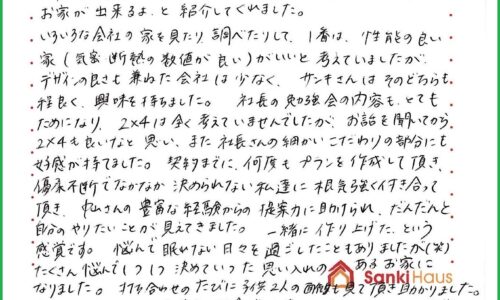 お家が出来るよ。と紹介してくれました。
いろいろな会社の家を見たり、調べたりして、1番は、性能の良い
家（気密断熱の数値が良い）がいいと考えていましたが、
デザインの良さも兼ねた会社は少なく、サンキさんはそのどちらも
程良く、興味を持ちました。社長の勉強会の内容も、とても
ためになり、2×4は全く考えていませんでしたが、お話を聞いてから
2×4も良いなと思い、また社長さんの細かいこだわりの部分にも
好感が持てました。契約までに、何度もプランを作成して頂き、
優柔不断でなかなか決められない私達に根気強く付き合って
頂き、さんの豊富な経験からの提案力に助けられ、だんだんと
自分のやりたいことが見えてきました。一緒に作り上げた、という
感覚です。悩んで眠れない日々を過ごしたこともありましたが（笑）
たくさん悩んで1つ1つ決めていった思い入れのあるお家に
なりました。打ち合わせのたびに子供2人の面倒も見て頂き助かりました。
SankiHaus